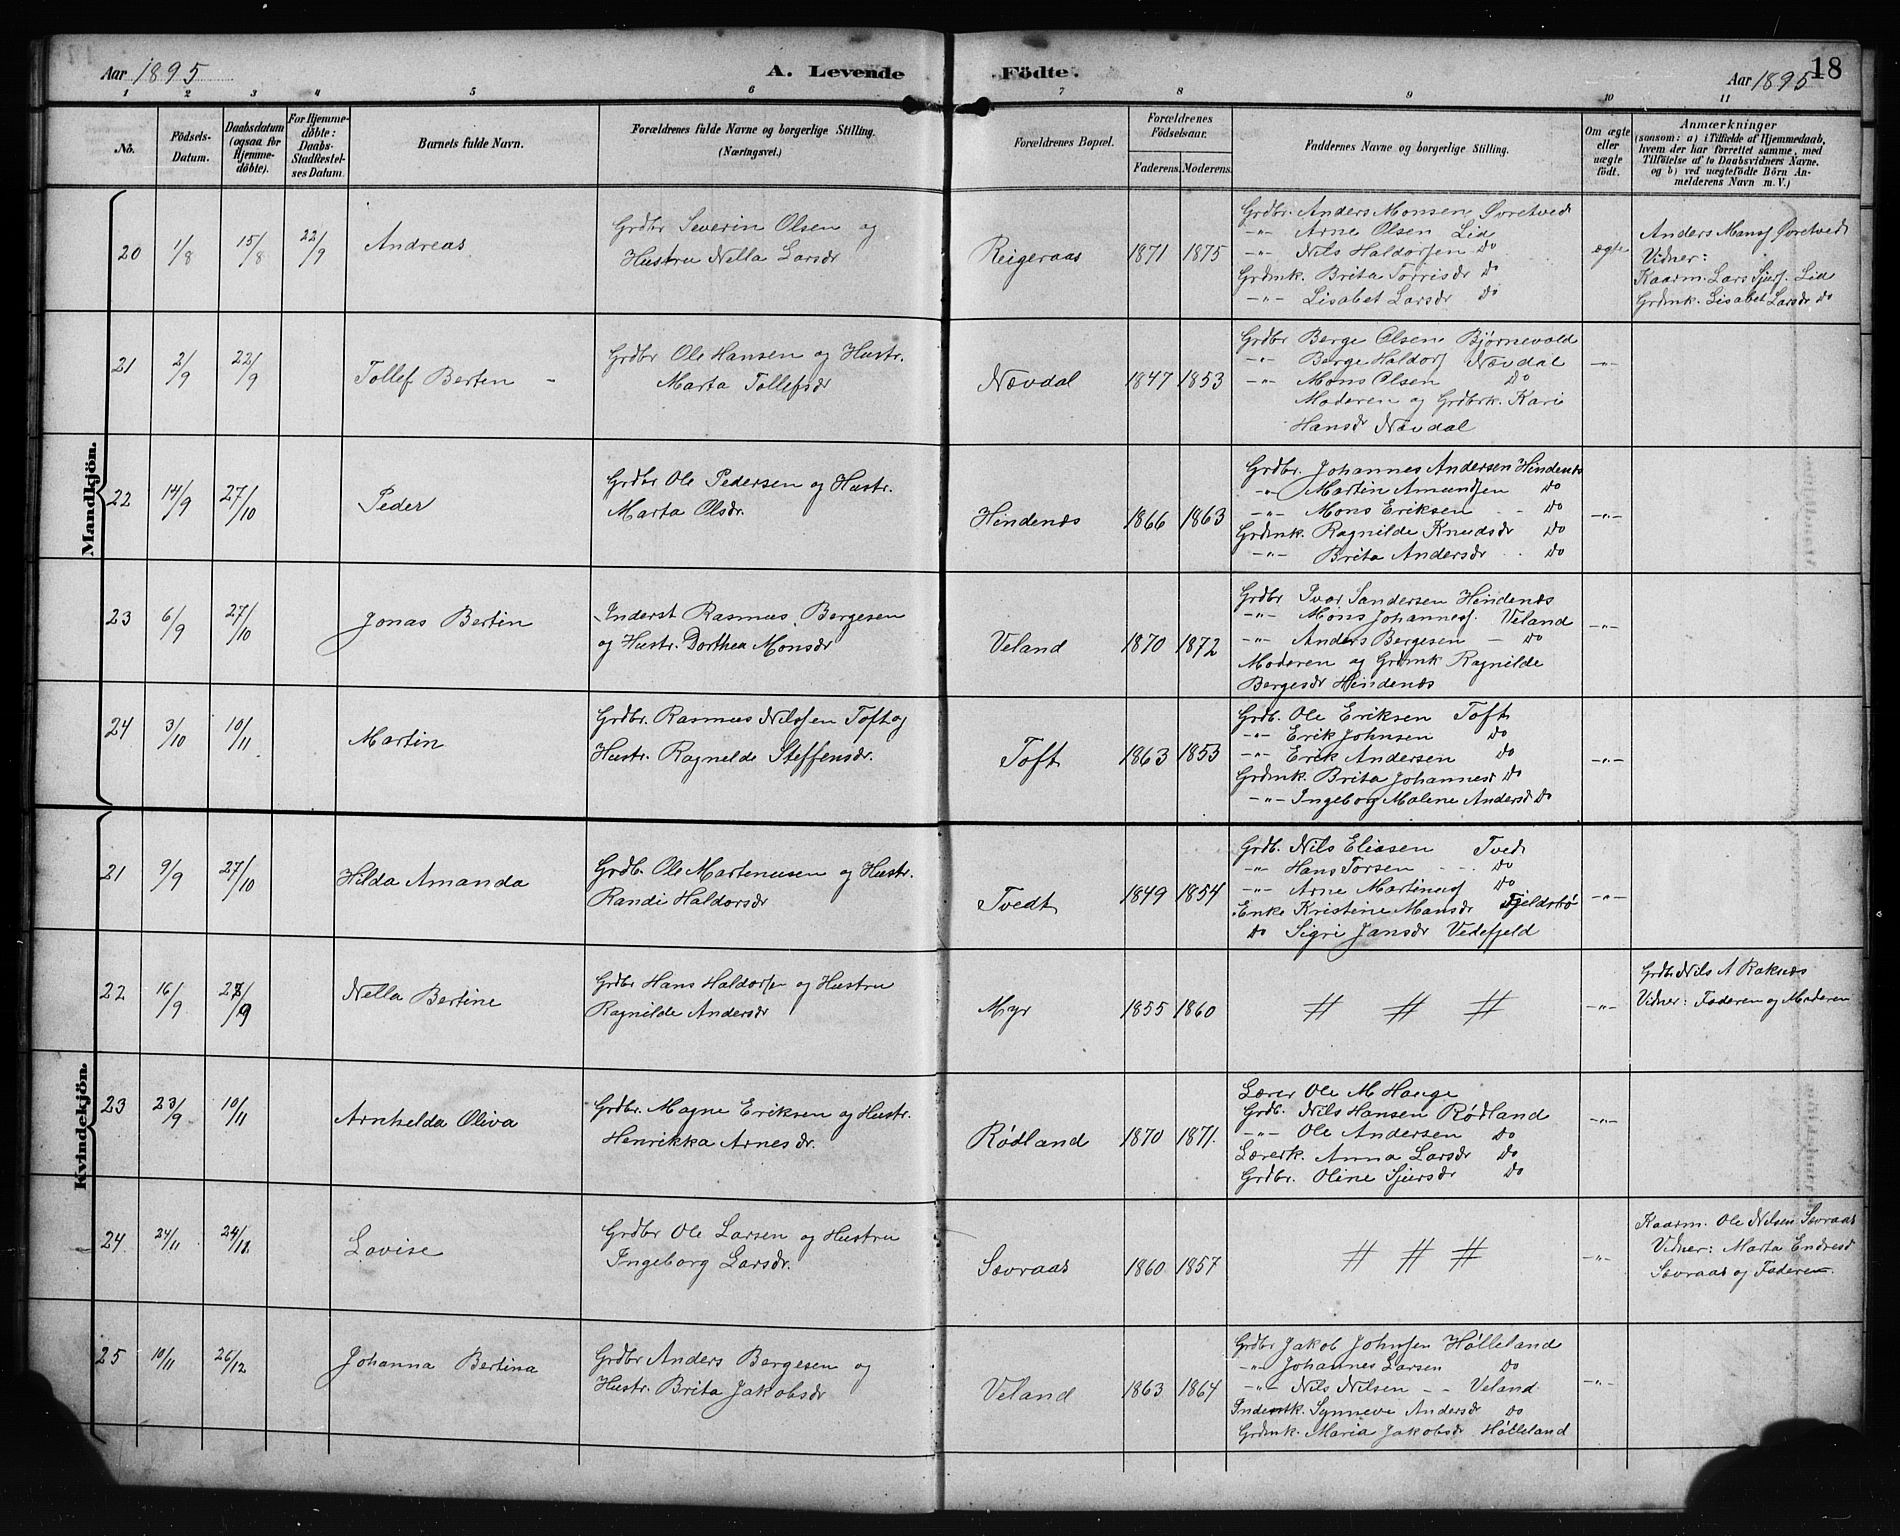 Aar 1895
A. Levende Födte.
Aar 1895
18
1 2 3 4 5 6 7 8 9 10 11
No.
Födsels-
Datum.
Daabsdatum
(ogsaa for
Hjemme-
döbte).
For Hjemme-
döbte:
Daabs-
Stadfæstel-
ses Datum.
Barnets fulde Navn.
Forældrenes fulde Navne og borgerlige Stilling.
(Næringsvei.)
Forældrenes Bopæl.
Forældrenes
Födselsaar.
Faderens. Moderens.
Faddernes Navne og borgerlige Stilling.
Om ægte
eller
uægte
födt.
Anmærkninger
(saasom: a) i Tilfælde af Hjemmedaab,
hvem der har forrettet samme, med
Tilföielse af to Daabsvidners Navne.
og b) ved uægtefödte Börn An-
melderens Navn m. V.)
Mandkjön.
20 1/8 15/8 22/9
Andreas
Grdbr Severin Olsen og
Hustru Nella Larsdr
Reigeraas 1871 1875
Grdbr. Anders Monsen Øvretvedt
-"- Arne Olsen Lid
-"- Nils Haldorsen Do
Grdmk. Brita Torrisdr Do
-"- Lisabet Larsdr Do
ægte
Anders Mansf Øvretvedt
Vidner:
Kaarm. Lars Sjurs. Lid
Grdmk. Lisabet Larsdr Do
21 2/9 22/9
Tollef Berten -
Grdbr Ole Hansen og Hustr.
Marta Tollefsdr
Nævdal 1847 1853
Grdbr Berge Olsen Bjørnevold
-"- Berge Haldorf Nævdal
-"- Mons Olsen Do
Moderen og Grdbrk. Kari
Hansdr Nævdal
-"-
22 14/9 27/10
Peder
Grdbr Ole Pedersen og Hustr.
Marta Olsdr.
Hindenæs 1866 1863
Grdbr. Johannes Andersen Hindenæs
-"- Martin Amundsen Do
-"- Mons Eriksen - - Do
Grdmk. Ragnilde Knudsdr Do
-"- Brita Andersdr . . Do
-"-
23 6/9 27/10
Jonas Bertin
Inderst Rasmus Bergesen
og Hustr. Dorthea Monsdr
Veland 1870 1872
Grdbr Ivar Sandersen Hindenæs
-"- Mons Johannesf. Veland
-"- Anders Bergesen - Do
Moderen og Grdmk Ragnilde
Bergesdr Hindenæs
-"-
24 3/10 10/11
Martin
Grdbr. Rasmus Nilssen Toft og
Hustr. Ragnelde Steffensdr.
Toft 1863 1853
Grdb. Ole Eriksen Toft
-"- Erik Johnsen Do
-"- Erik Andersen Do
Grdmk. Brita Johannesdr Do
-"- Ingeborg Malene Andersd Do
-"-
Kvindekjön.
21 9/9 27/10
Hilda Amanda
Grdb. Ole Martenusen og Hustr.
Randi Haldorsdr
Tvedt 1849 1854
Grdb. Nils Eliasen Tvedt
-"- Hans Torsen - - . Do
-"- Arne Martinusf Do
Enke Kristine Mansdr Fjeldsbø
Do Sigri Jansdr Vedefjeld
-"-
22 16/9
Nella Bertine
Grdbr Hans Haldorsen og Hustru
Ragnilde Andersdr
Myr 1855 1860
# # #
-"-
Grdbr Nils A Raknæs
Vidner: Faderen og Moderen
23 23/9 10/11
Arnhelda Oliva
Grdbr. Magne Eriksen og Hustr.
Henrikka Arnesdr.
Rødland 1870 1871.
Lærer Ole M Hauge
Grdb. Nils Hansen Rødland
-"- Ole Andersen Do
Lærerk. Anna Larsdr Do
Grdbr. Oline Sjursdr Do
-"-
24 24/11 24/11.
Lovise
Grdbr Ole Larsen og Hustru
Ingeborg Larsdr.
Sævraas 1860 1857
# # #
-"-
Kaarm. Ole Nilsen Sævraas
Vidner: Marta Endresd
Sævraas og Faderen.
25 10/11 26/12
Johanna Bertina
Grdbr Anders Bergesen og
Hustr. Brita Jakobsdr
Veland 1863 1864
Grdbr Jakob Johnsen Hølleland
-"- Johannes Larsen Do
-"- Nils Nilsen - - Veland
Inderstk. Synneve Andersdr Do
Grdmk. Maria Jakobsdr Hølleland
-"-